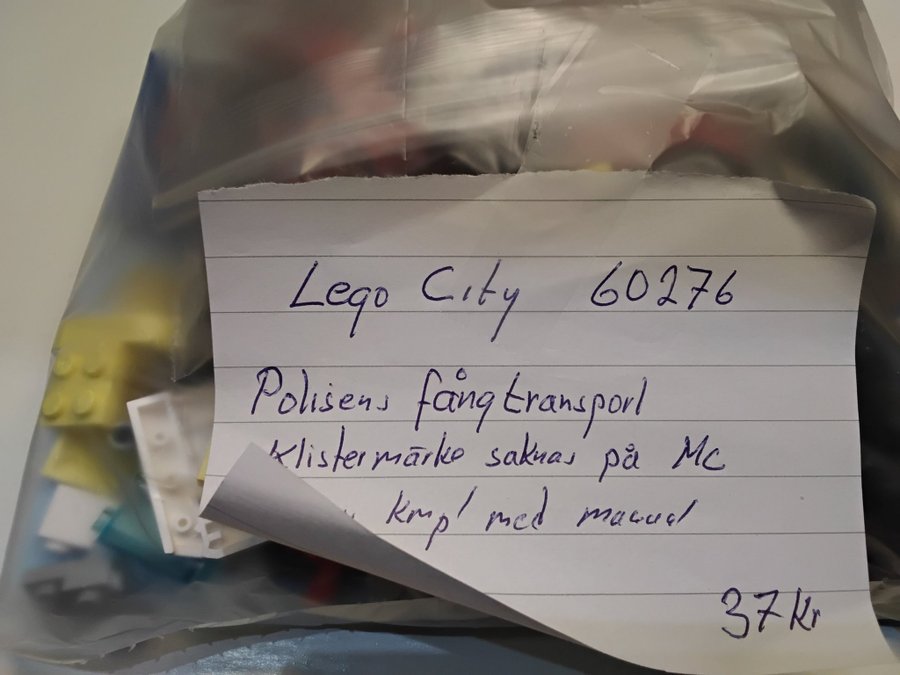 Lego City 60276
Polisens fångtransport
Klistermärke saknas på Mc
kmpl med manual
37 kr